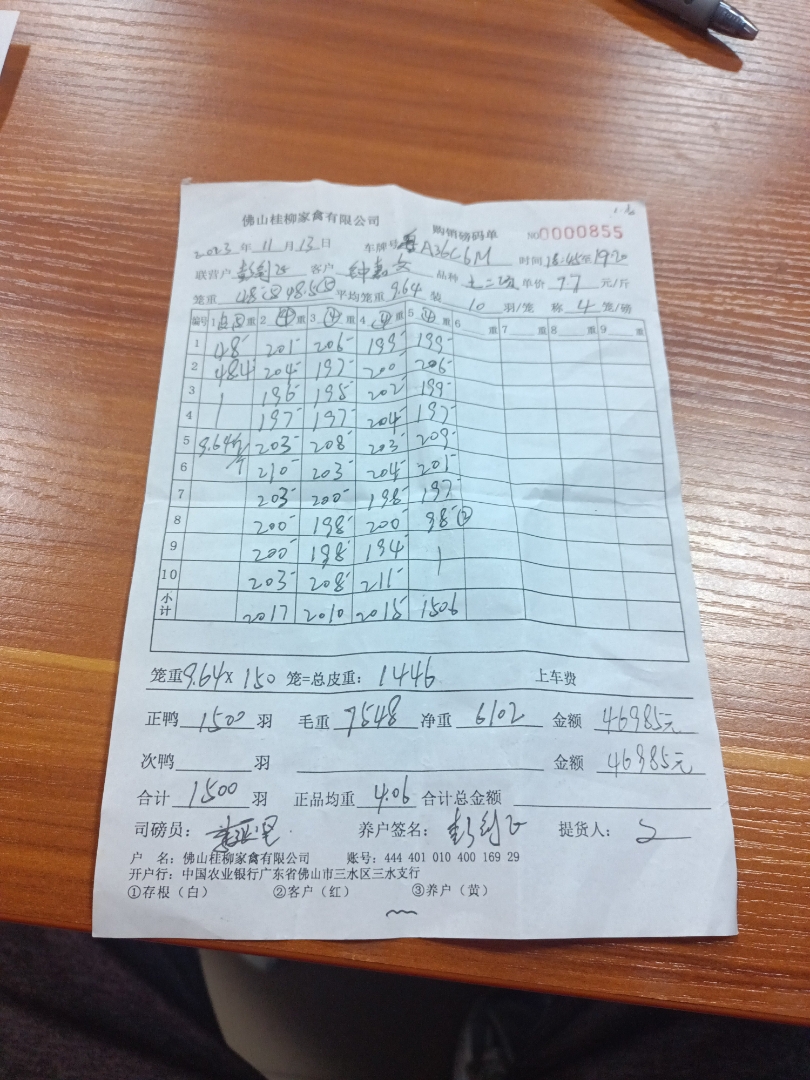 佛山桂柳家禽有限公司 购销磅码单 NO0000855
2023年11月13日 车牌号粤A36C6M 时间18:45至1920
联营户 客户 品种 土二 单价 77 元/斤
笼重 48② 48.5② 平均笼重 9.64 装 10 羽/笼 称 4 笼/磅
编号 1 重 2 ④ 重 3 ④ 重 4 ④ 重 5 ④ 重 6 重 7 重 8 重 9 重
1 48 201 206 199 199
2 484 204 197 200 206
3 196 195 202 199
4 197 197 204 197
5 9.64斤 203 208 203 209
6 210 203 204 201
7 203 200 198 197
8 200 198 200 98②
9 200 198 194
10 203 208 211
小计 2017 2010 2015 1506
笼重9.64×150笼=总皮重: 1446 上车费
正鸭 1500 羽 毛重 7548 净重 6102 金额 46985元
次鸭 羽 金额 46985元
合计 1500 羽 正品均重 4.06 合计总金额
司磅员: 养户签名: 提货人:
户 名: 佛山桂柳家禽有限公司 账号: 444 401 010 400 169 29
开户行: 中国农业银行广东省佛山市三水区三水支行
①存根（白） ②客户（红） ③养户（黄）